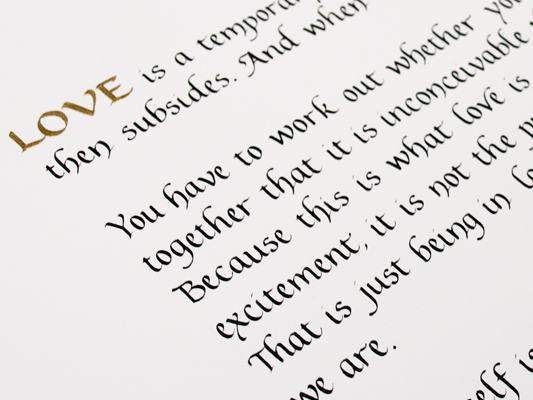 LOVE is a
then subsides. And when
You have to work out whether
together that it is inconceivable
Because this is what love is
excitement, it is not the
That is just being in
we are.